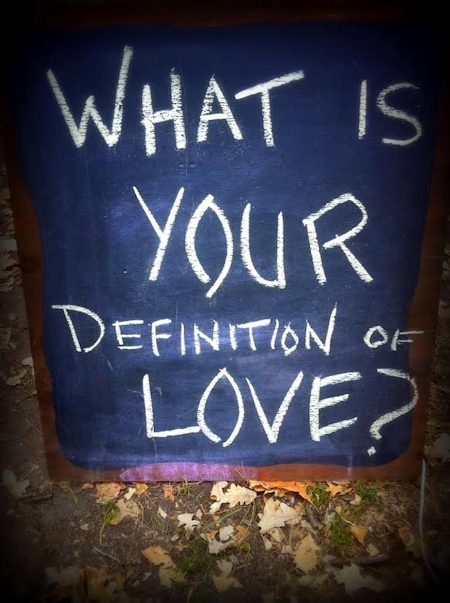 WHAT IS
YOUR
DEFINITION OF
LOVE?